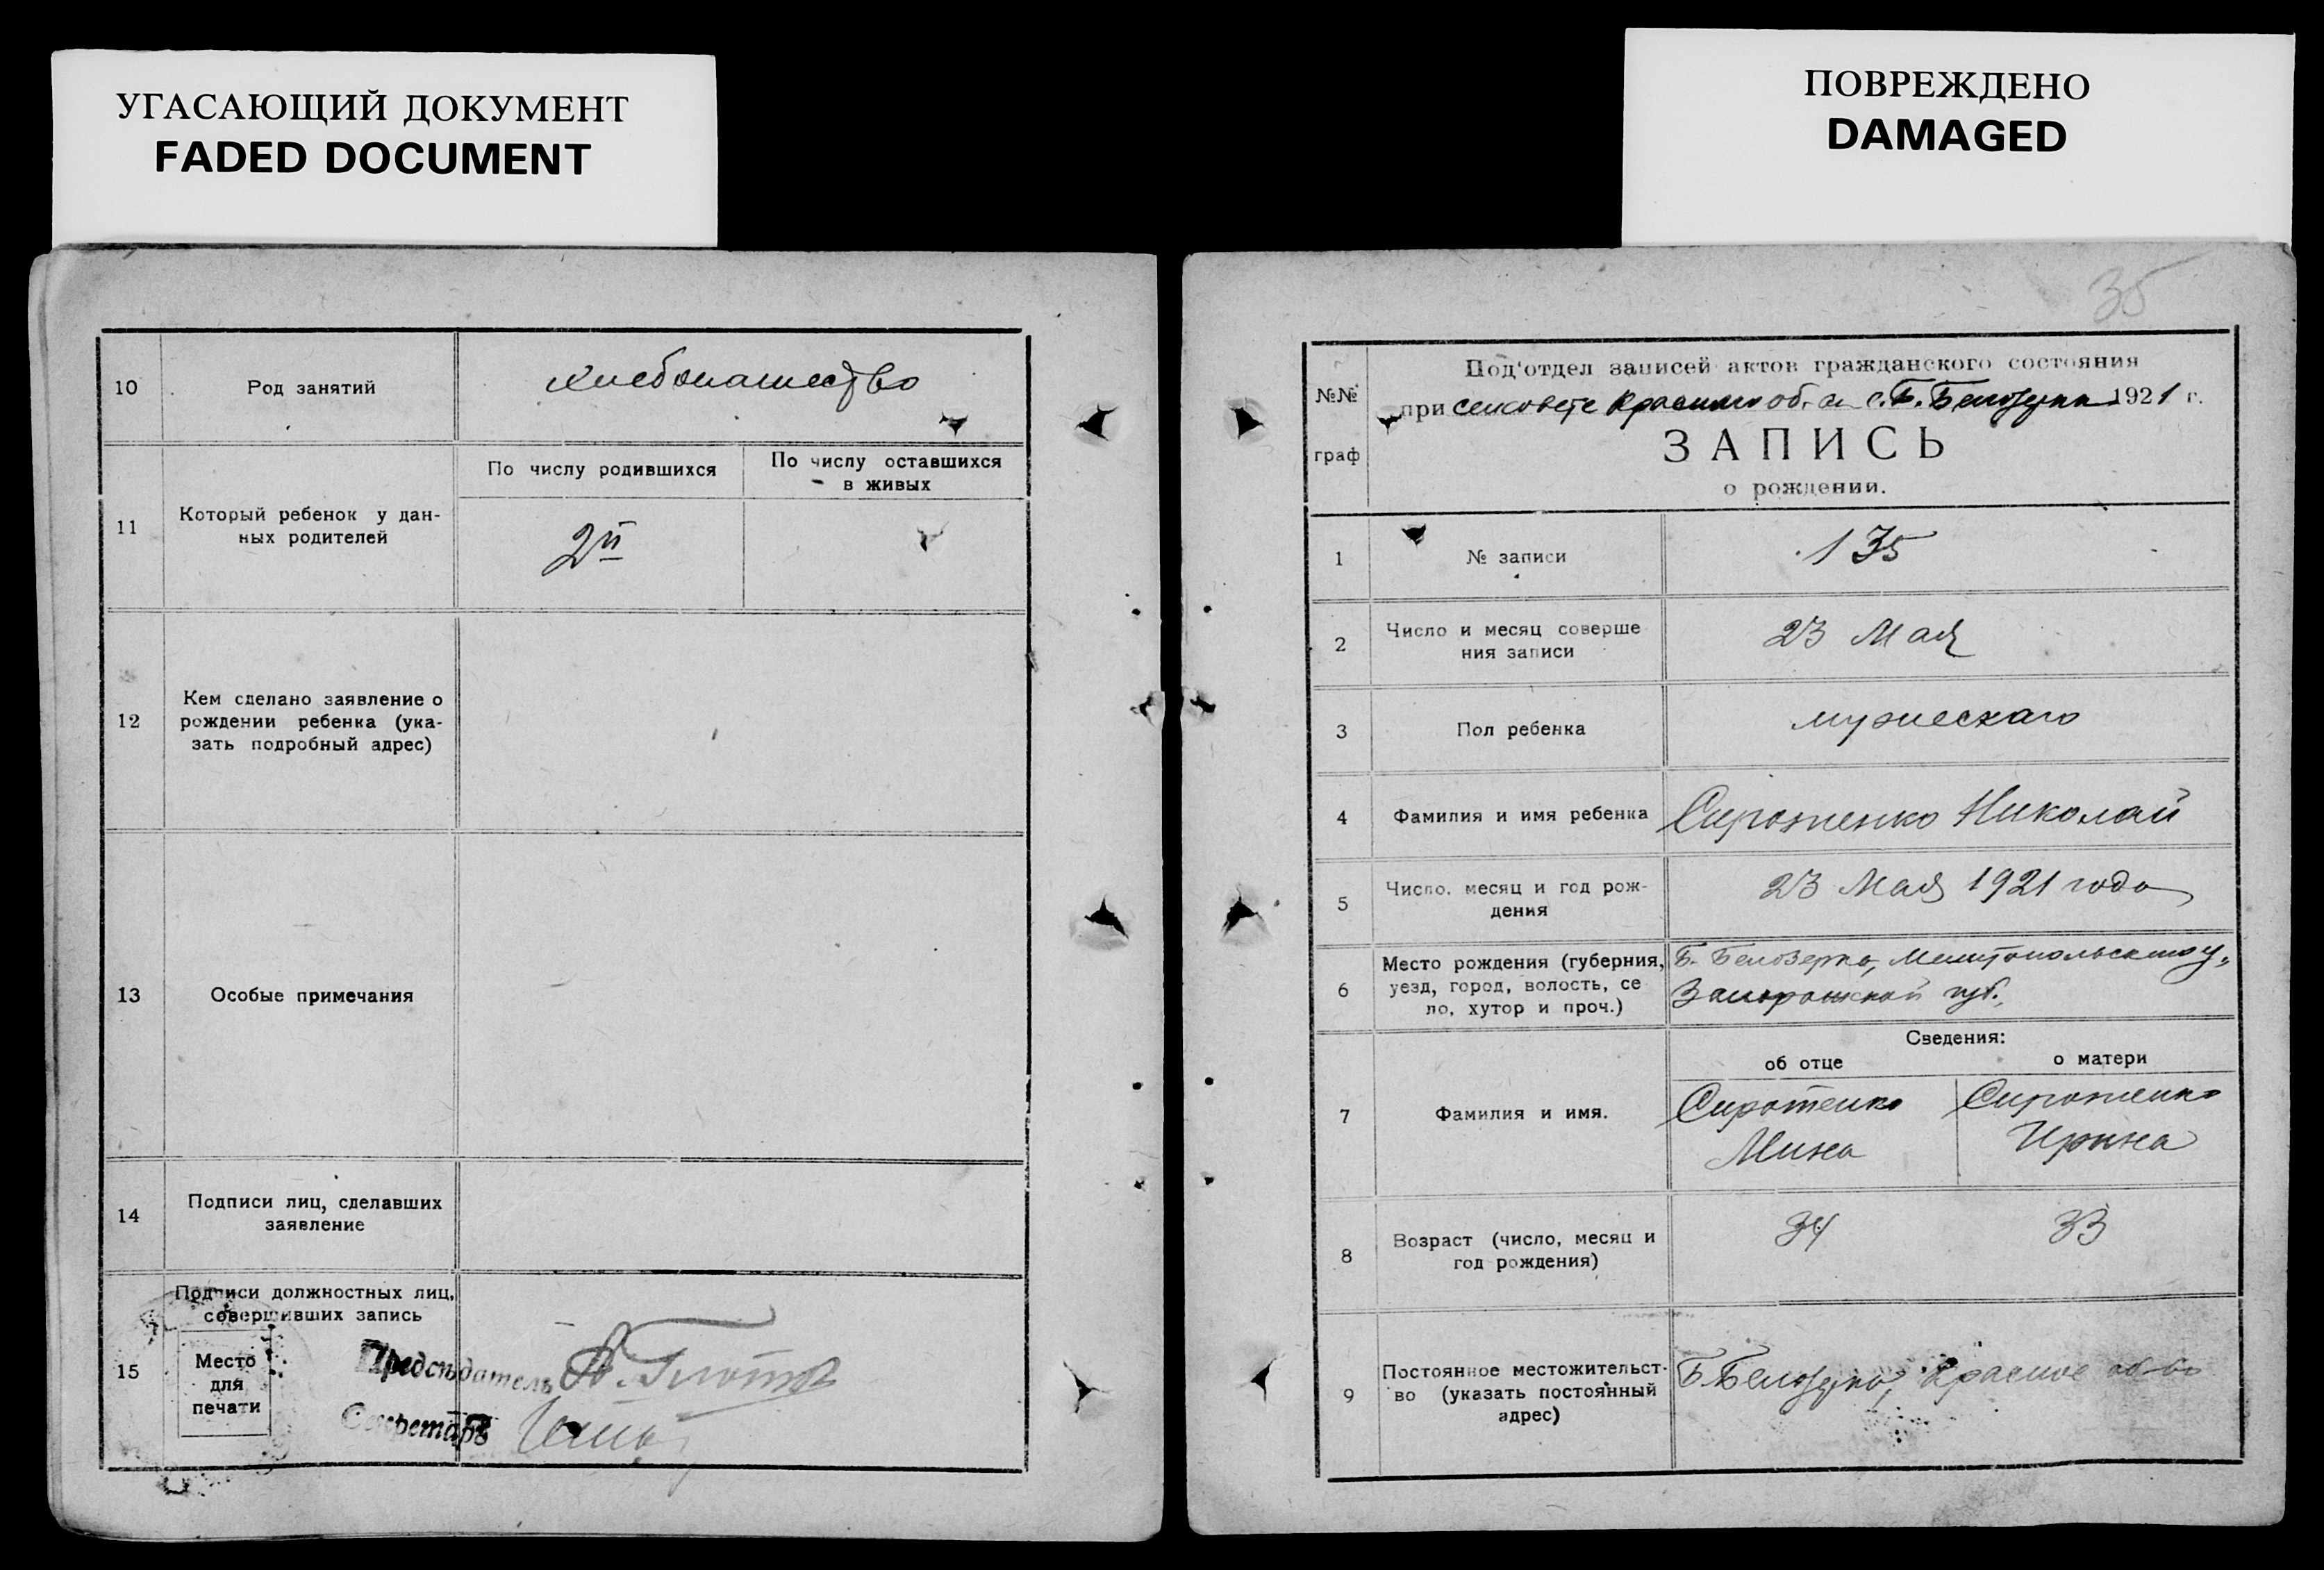 УГАСАЮЩИЙ ДОКУМЕНТ
FADED DOCUMENT
10 Род занятий хлебопашество
11 Который ребенок у дан-
ных родителей
По числу родившихся
2й
По числу оставшихся
в живых
12 Кем сделано заявление о
рождении ребенка (ука-
зать подробный адрес)
13 Особые примечания
14 Подписи лиц, сделавших
заявление
15 Подписи должностных лиц,
совершивших запись
Место
для
печати
Председатель
Секретарь
ПОВРЕЖДЕНО
DAMAGED
35
№№
граф
Под'отдел записей актов гражданского состояния
при сельсовете Красного об-ва с. Б. Белозерки 1921 г.
ЗАПИСЬ
о рождении.
1 № записи 135
2 Число и месяц соверше
ния записи
23 Мая
3 Пол ребенка мужескаго
4 Фамилия и имя ребенка Сиротенко Николай
5 Число, месяц и год рож-
дения
23 Мая 1921 года
6 Место рождения (губерния,
уезд, город, волость, се
ло, хутор и проч.)
Б. Белозерка, Мелитопольского у.,
Запорожской губ.
Сведения:
об отце
о матери
7 Фамилия и имя.
Сиротенко
Мина
Сиротенко
Ирина
8 Возраст (число, месяц и
год рождения)
34
33
9 Постоянное местожительст-
во (указать постоянный
адрес)
Б. Белозерка, Красное об-во